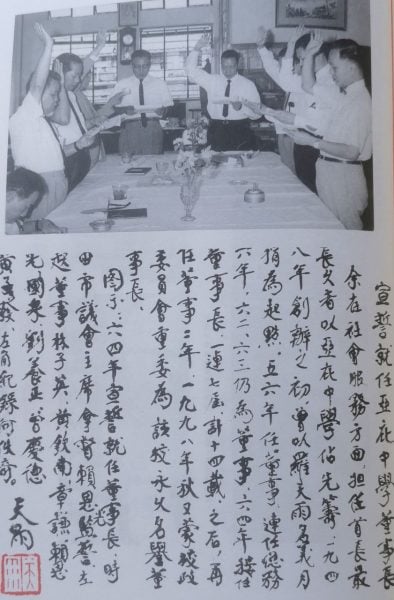 宣誓就任亞庇中學董事長
余在社會服務方面,担任首長最
長久者以亞庇中學佔先籌,一九四
八年創辦之初,曾以羅天雨名義月
捐為起點,五六年任董事,連任總務
六年,六二、六三仍為董事,六四年接任
董事長,一連七屆,計十四載,之後,再
任董事二年,一九九八年秋又蒙該校
委員會重委為該校永久名譽董
事長
圖示:六四年宣誓就任董事長,時
由市議會主席拿督賴恩監誓,左
起董事 子英、黃欽南、章謙、賴恩
國泰、劉養正、曾慶德
發,左角紀錄何性奇。
天雨